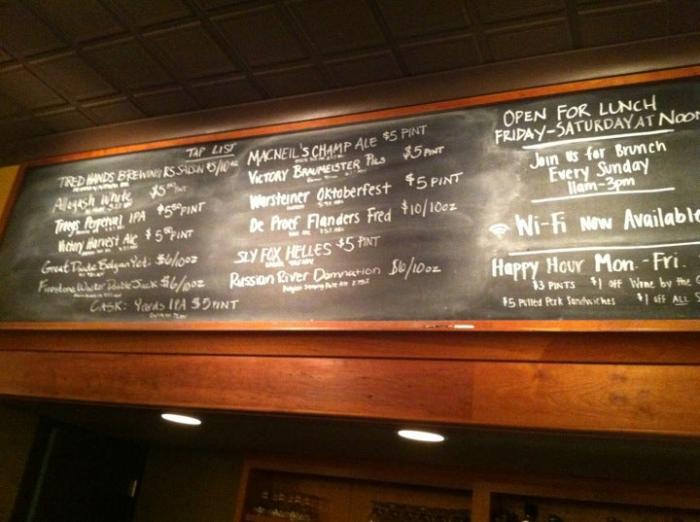 TAP LIST
TIRED HANDS BREWING RS SAISON $5/10oz
Allagash White $5 PINT
Troegs Perpetual IPA $5 50 PINT
Victory Harvest Ale $5 50 PINT
Great Divide Belgian Yeti $6/10oz
Firestone Walker Double Jack $6/10oz
CASK: Yards IPA $5 PINT
MACNEIL'S CHAMP ALE $5 PINT
VICTORY BRAUMEISTER PILS $5 PINT
Warsteiner Oktoberfest $5 PINT
De Proef Flanders Fred $10/10oz
SLY FOX HELLES $5 PINT
Russian River Damnation $6/10oz
OPEN FOR LUNCH
FRIDAY-SATURDAY AT Noon
Join us for Brunch
Every Sunday
11am-3pm
Wi-Fi Now Available
Happy Hour Mon-Fri.
$3 PINTS $1 OFF Wine by the G
$5 Pulled Pork Sandwiches $1 off ALL